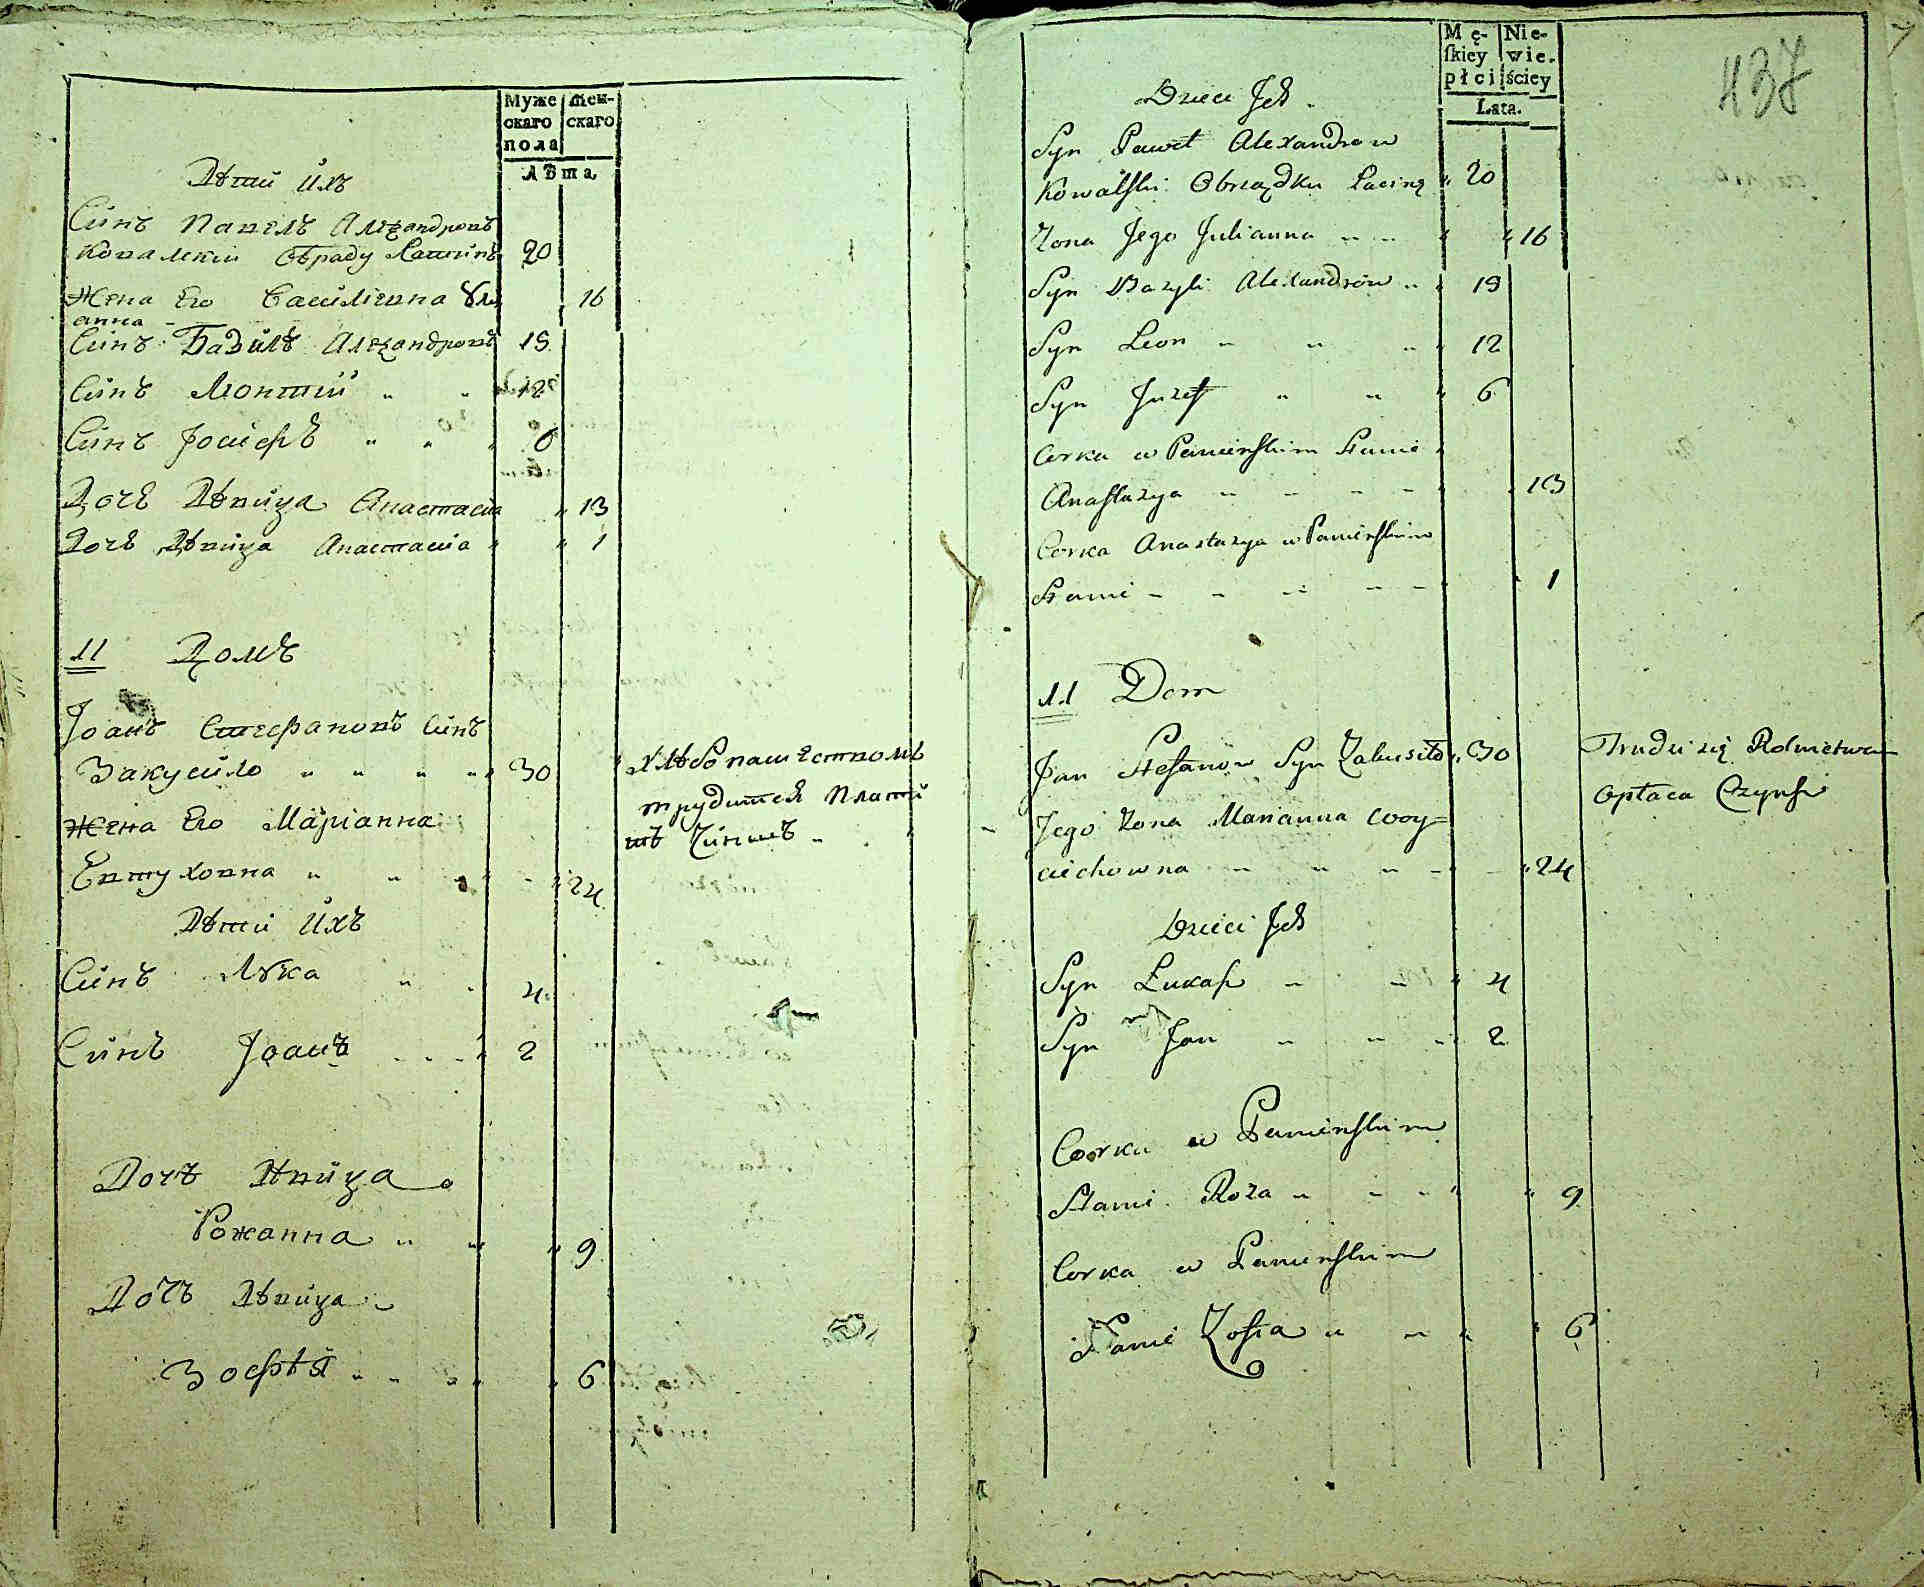 Муже
скаго
пола
Жен-
скаго
Лѣта,
Дѣти Ихъ
Синъ Павелъ Алеѯандровъ
Ковалскій Обраду Латинъ 20
Жена Его Василіевна Ули
анна 16
Синъ Базилъ Алеѯандровъ 19
Синъ Леонтій „ „ 12
Синъ Іосіефъ „ „ „ 6
Дочъ Дѣвица Анастасія „ 13
Дочъ Дѣвица Анастасіа „ „ 1
11 Домъ
Іоанъ Стефановъ Синъ
Закусило „ „ „ „ 30
Жена Его Маріанна
Евтуховна „ „ „ „ 24
Хлѣбопашествомъ
трудится плати
тъ Чиншъ
Дѣти Ихъ
Синъ Лука „ „ 4
Синъ Іоанъ „ 2
Дочъ Дѣвица
Рожанна „ „ „ 9
Дочъ Дѣвица
Зофѣя „ „ „ „ 6
Mę-
skiey
płci
Nie-
wie-
ściey
Lata.
437
Dzieci Ich
Syn Paweł Alexandrow
Kowalski Obrządku Łacinꝫ „ 20
Zona Jego Julianna „ „ „ „ 16
Syn Bazyli Alexandrów „ „ 19
Syn Leon „ „ „ „ 12
Syn Jozef „ „ „ 6
Corka w Panieńskim Stanie „
Anastazya „ „ „ „ „ 13
Corka Anastazya w Panieńskim
Stanie „ „ „ „ „ „ 1
11 Dom
Jan Stefanów Syn Zakusiło „ 30
Trudni się Rolnictwem
Opłaca Czynsz
Jego Zona Marianna Woy=
ciechowna „ „ „ „ „ 24
Dzieci Ich
Syn Łukasz „ „ „ 4
Syn Jan „ „ „ 2
Coorka w Panieńskim
Stanie Roza „ „ „ „ „ 9
Corka w Panieńskim
Stanie Zofia „ „ „ „ 6